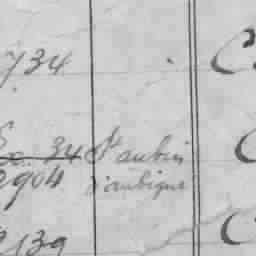 734 C
34 St aubin
2904 d'aubigné
139